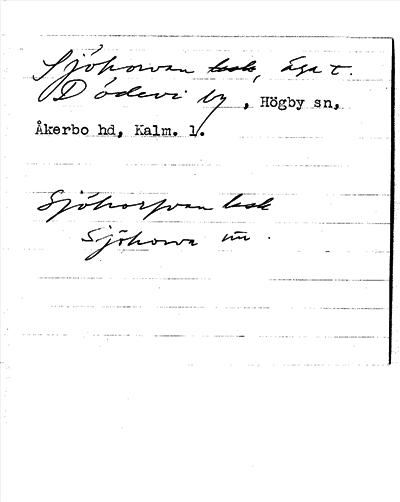 Sjöhorvan bsk, äga t.
Dödevi by, Högby sn,
Åkerbo hd, Kalm. l.
Sjöhorfvan bsk
Sjöhorva un.